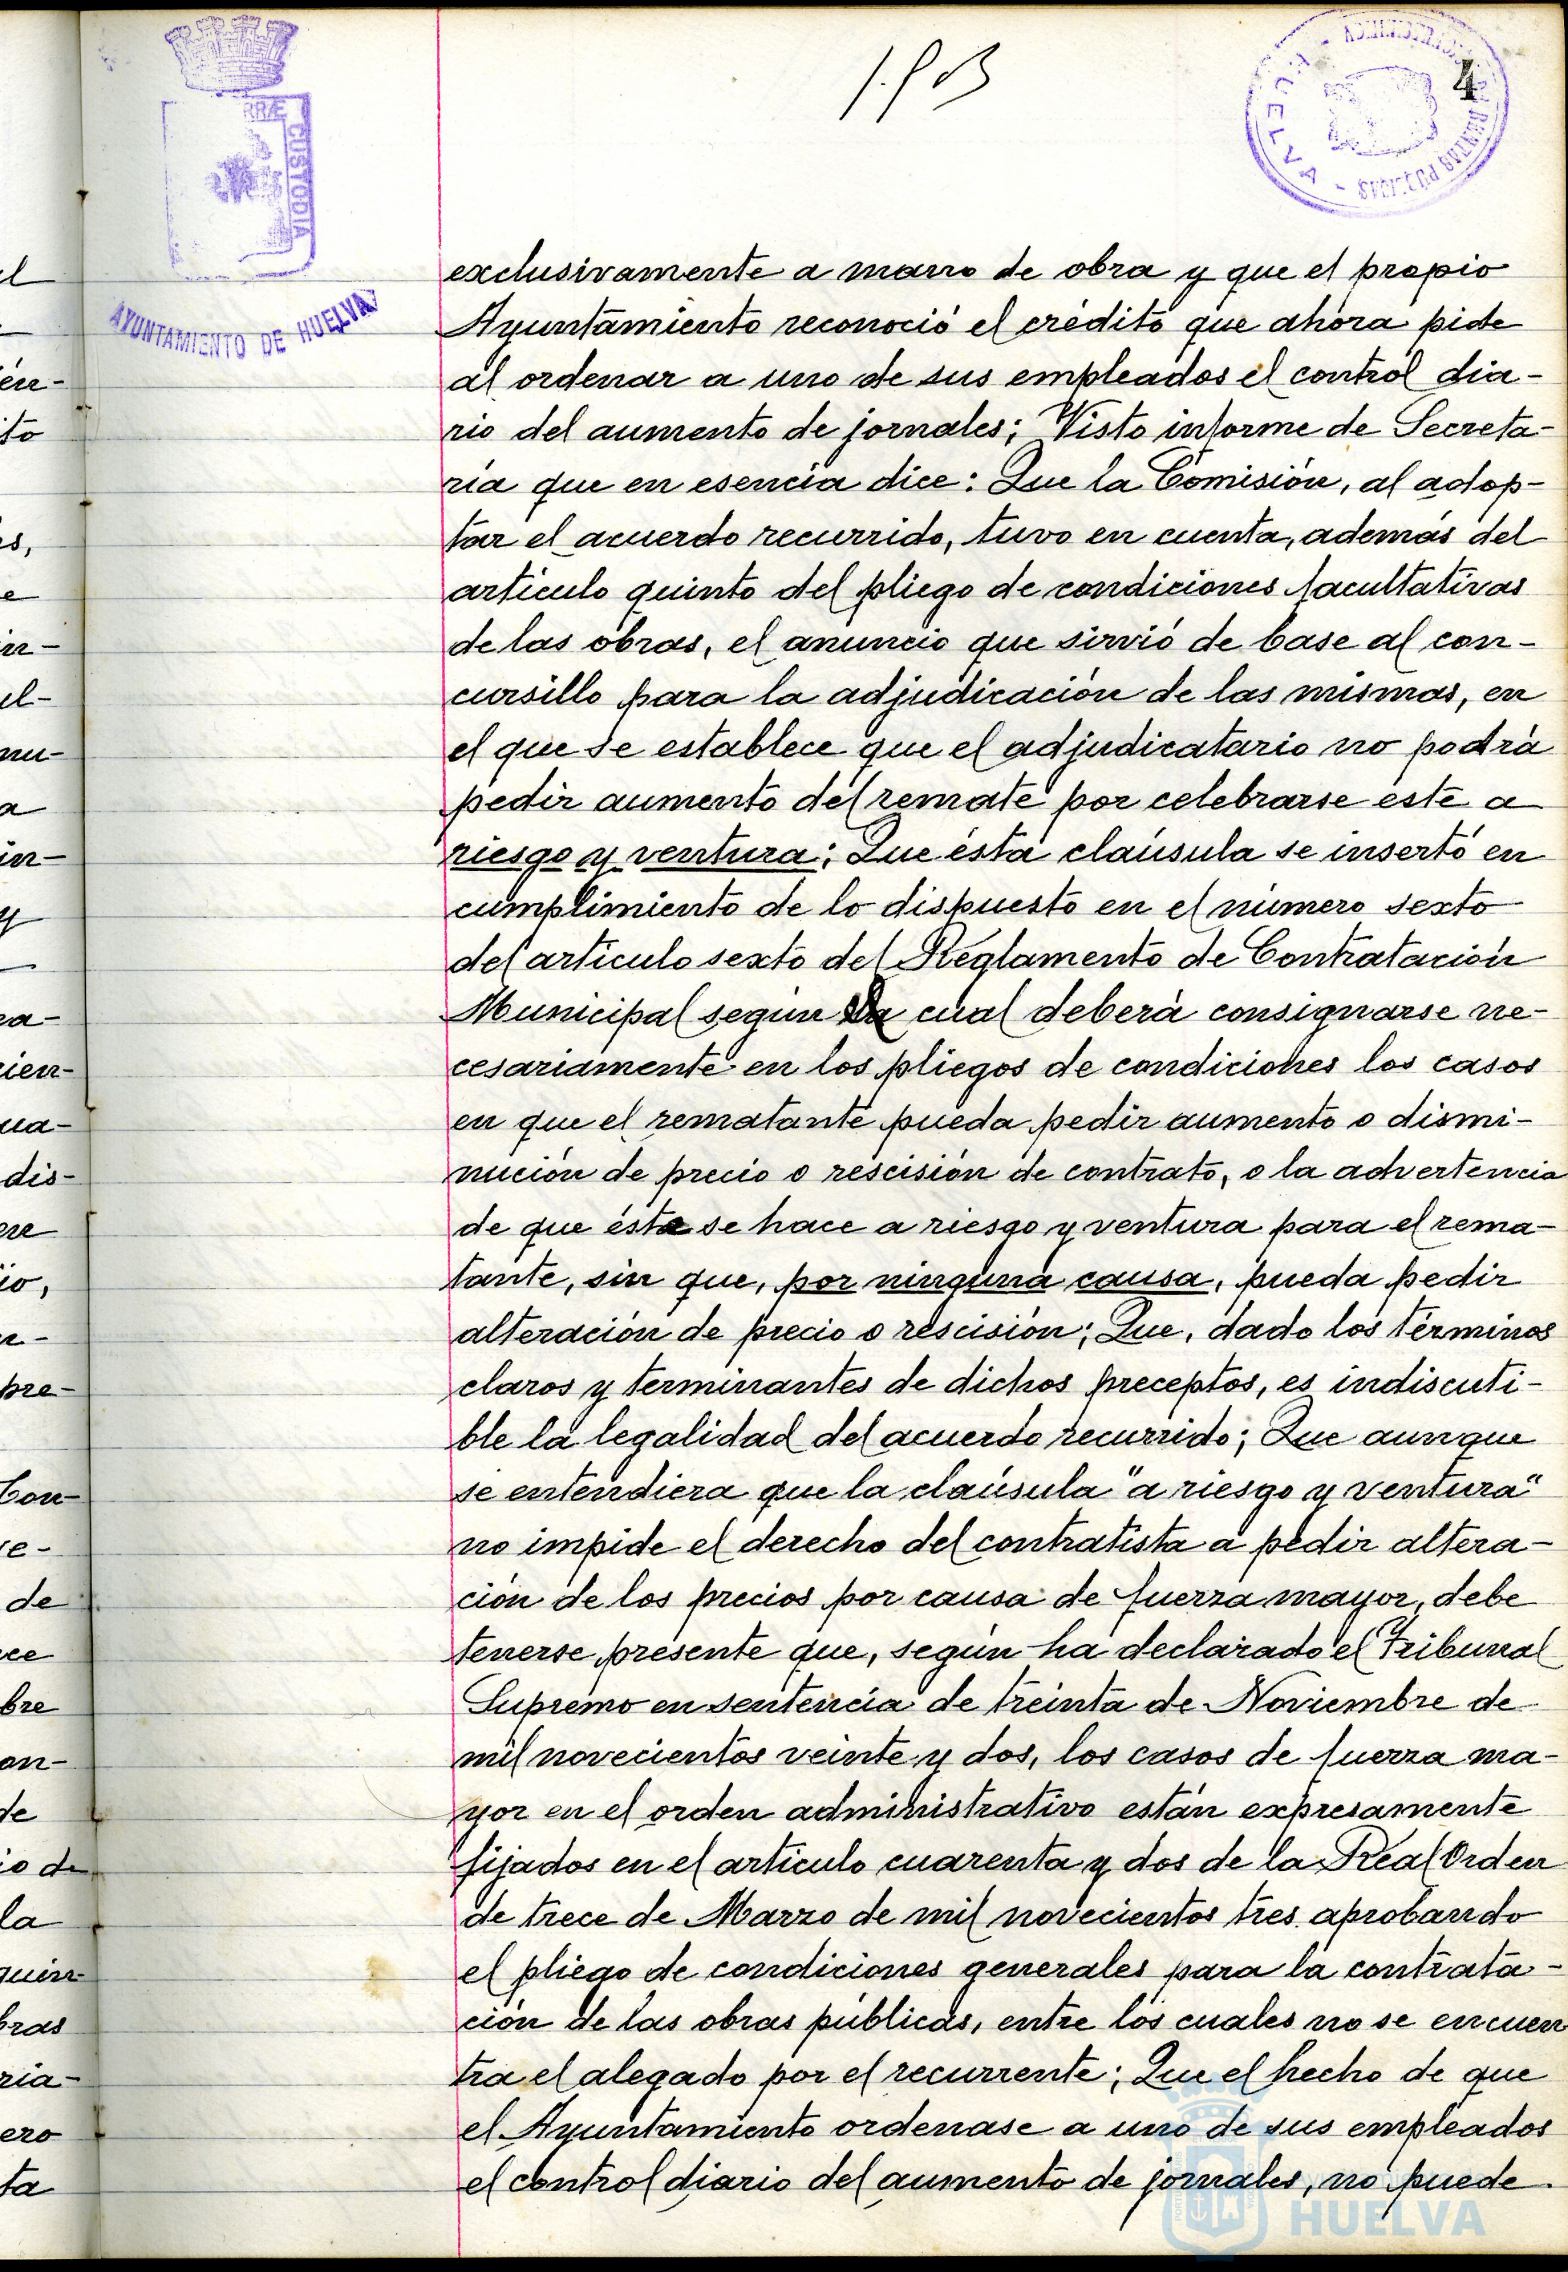 4
RRÆ
CUSTODIA
AYUNTAMIENTO DE HUELVA
HUELVA
RENTAS PUBLICAS
exclusivamente a mano de obra y que el propio
Ayuntamiento reconoció el crédito que ahora pide
al ordenar a uno de sus empleados el control dia-
rio del aumento de jornales; Visto informe de Secreta-
ría que en esencia dice: Que la Comisión, al adop-
tar el acuerdo recurrido, tuvo en cuenta, además del
artículo quinto del pliego de condiciones facultativas
de las obras, el anuncio que sirvió de base al con-
cursillo para la adjudicación de las mismas, en
el que se establece que el adjudicatario no podrá
pedir aumento del remate por celebrarse éste a
riesgo y ventura; Que ésta claúsula se insertó en
cumplimiento de lo dispuesto en el número sexto
del artículo sexto del Reglamento de Contratación
Municipal según la cual deberá consignarse ne-
cesariamente en los pliegos de condiciones los casos
en que el rematante pueda pedir aumento o dismi-
nución de precio o rescisión de contrato, o la advertencia
de que éste se hace a riesgo y ventura para el rema-
tante, sin que, por ninguna causa, pueda pedir
alteración de precio o rescisión; Que, dado los términos
claros y terminantes de dichos preceptos, es indiscuti-
ble la legalidad del acuerdo recurrido; Que aunque
se entendiera que la claúsula "a riesgo y ventura"
no impide el derecho del contratista a pedir altera-
ción de los precios por causa de fuerza mayor, debe
tenerse presente que, según ha declarado el Tribunal
Supremo en sentencia de treinta de Noviembre de
mil novecientos veinte y dos, los casos de fuerza ma-
yor en el orden administrativo están expresamente
fijados en el artículo cuarenta y dos de la Real Orden
de trece de Marzo de mil novecientos tres aprobando
el pliego de condiciones generales para la contrata-
ción de las obras públicas, entre los cuales no se encuen
tra el alegado por el recurrente; Que el hecho de que
el Ayuntamiento ordenase a uno de sus empleados
el control diario del aumento de jornales, no puede
HUELVA